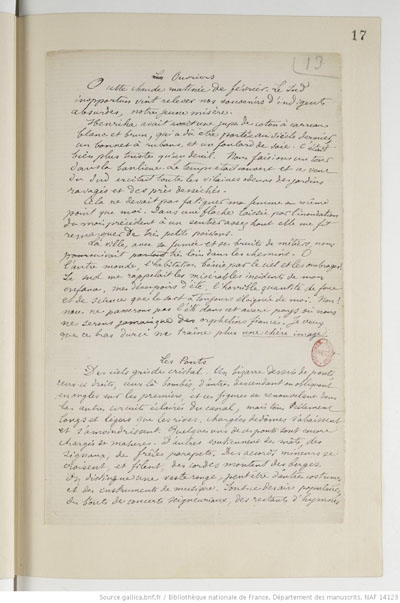 17
Les Ouvriers
O cette chaude matinée de février. Le Sud
inopportun vint relever nos souvenirs d'indigents
absurdes, notre jeune misère.
Henrika avait une jupe de coton à carreau
blanc et brun, qui a dû être portée au siècle dernier,
un bonnet à rubans, et un foulard de soie. C'était
bien plus triste qu'un deuil. Nous faisions un tour
dans la banlieue. Le temps était couvert et ce vent
du Sud excitait toutes les vilaines odeurs des jardins
ravagés et des prés desséchés.
Cela ne devait pas fatiguer ma femme au même
point que moi. Dans une flache laissée par l'inondation
du mois précédent à un sentier assez haut elle me fit
remarquer de très petits poissons.
La ville, avec sa fumée et ses bruits de métiers, nous
suivait très loin dans les chemins. O
l'autre monde, l'habitation bénie par le ciel et les ombrages!
Le sud me rappelait les misérables incidents de mon
enfance, mes désespoirs d'été, l'horrible quantité de force
et de science que le sort a toujours éloignée de moi. Non!
nous ne passerons pas l'été dans cet avare pays où nous
ne serons jamais que des orphelins fiancés. Je veux
que ce bras durci ne traîne plus une chère image.
Les Ponts
Des ciels gris de cristal. Un bizarre dessin de ponts,
ceux-ci droits, ceux-là bombés, d'autres descendant en obliquant
en angles sur les premiers, et ces figures se renouvelant dans
les autres circuits éclairés du canal, mais tous tellement
longs et légers que les rives, chargées de dômes s'abaissent
et s'amoindrissent. Quelques-uns de ces ponts sont encore
chargés de masures. D'autres soutiennent des mâts, des
signaux, de frêles parapets. Des accords mineurs se
croisent, et filent, des cordes montent des berges.
On distingue une veste rouge, peut-être d'autres costumes
et des instruments de musique. Sont-ce des airs populaires,
des bouts de concerts seigneuriaux, des restants d'hymnes
Source gallica.bnf.fr / Bibliothèque nationale de France, Département des manuscrits, NAF 14123